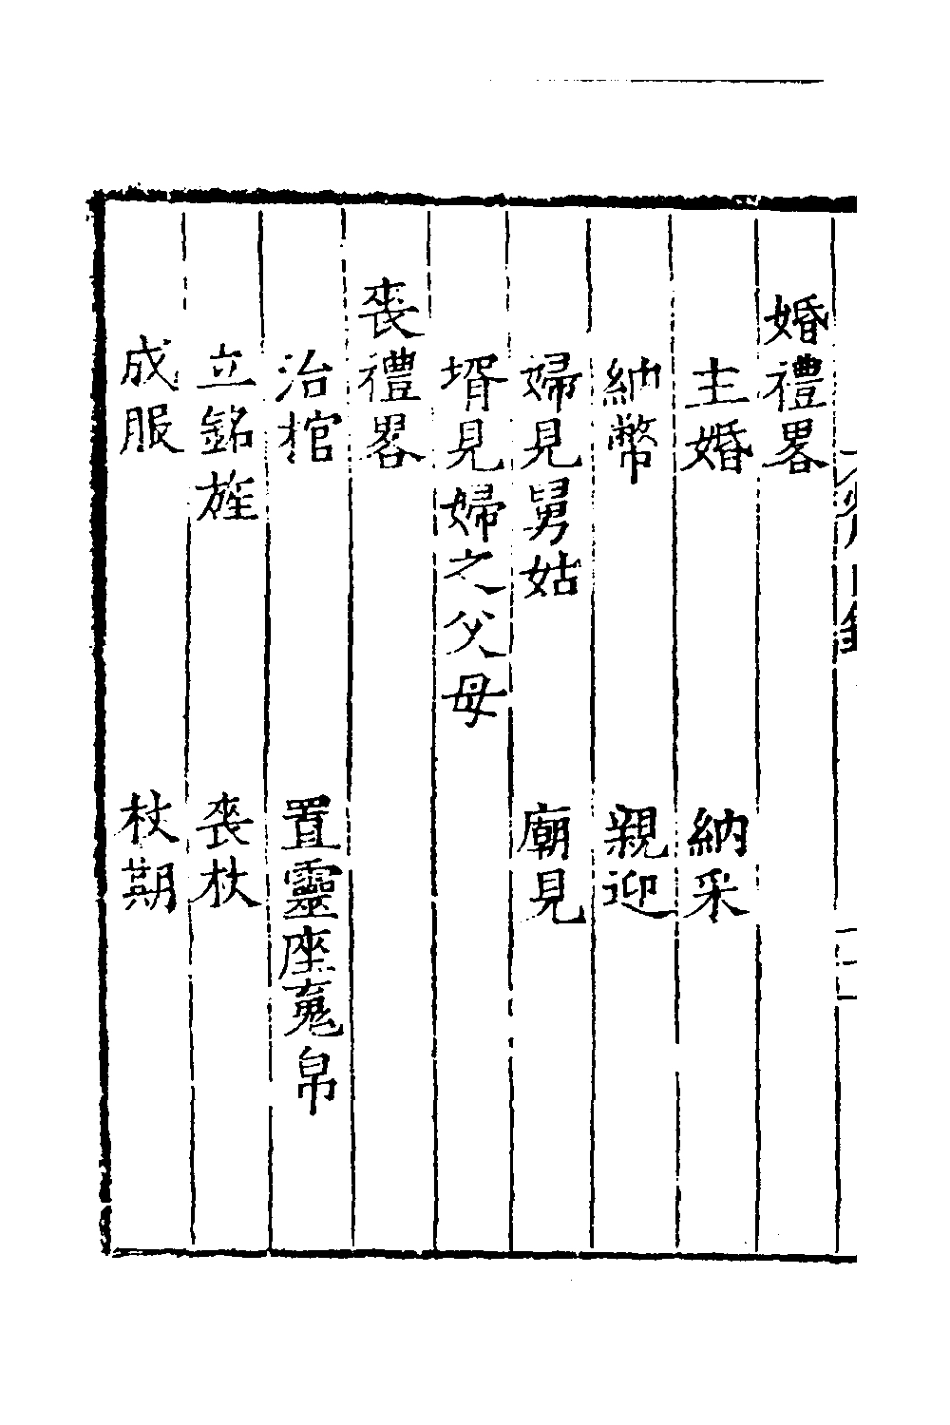 婚禮畧
主婚　納采
納幣　親迎
婦見舅姑　廟見
壻見婦之父母
喪禮畧
治棺　置靈座䰟帛
立銘旌　喪杖
成服　杖期